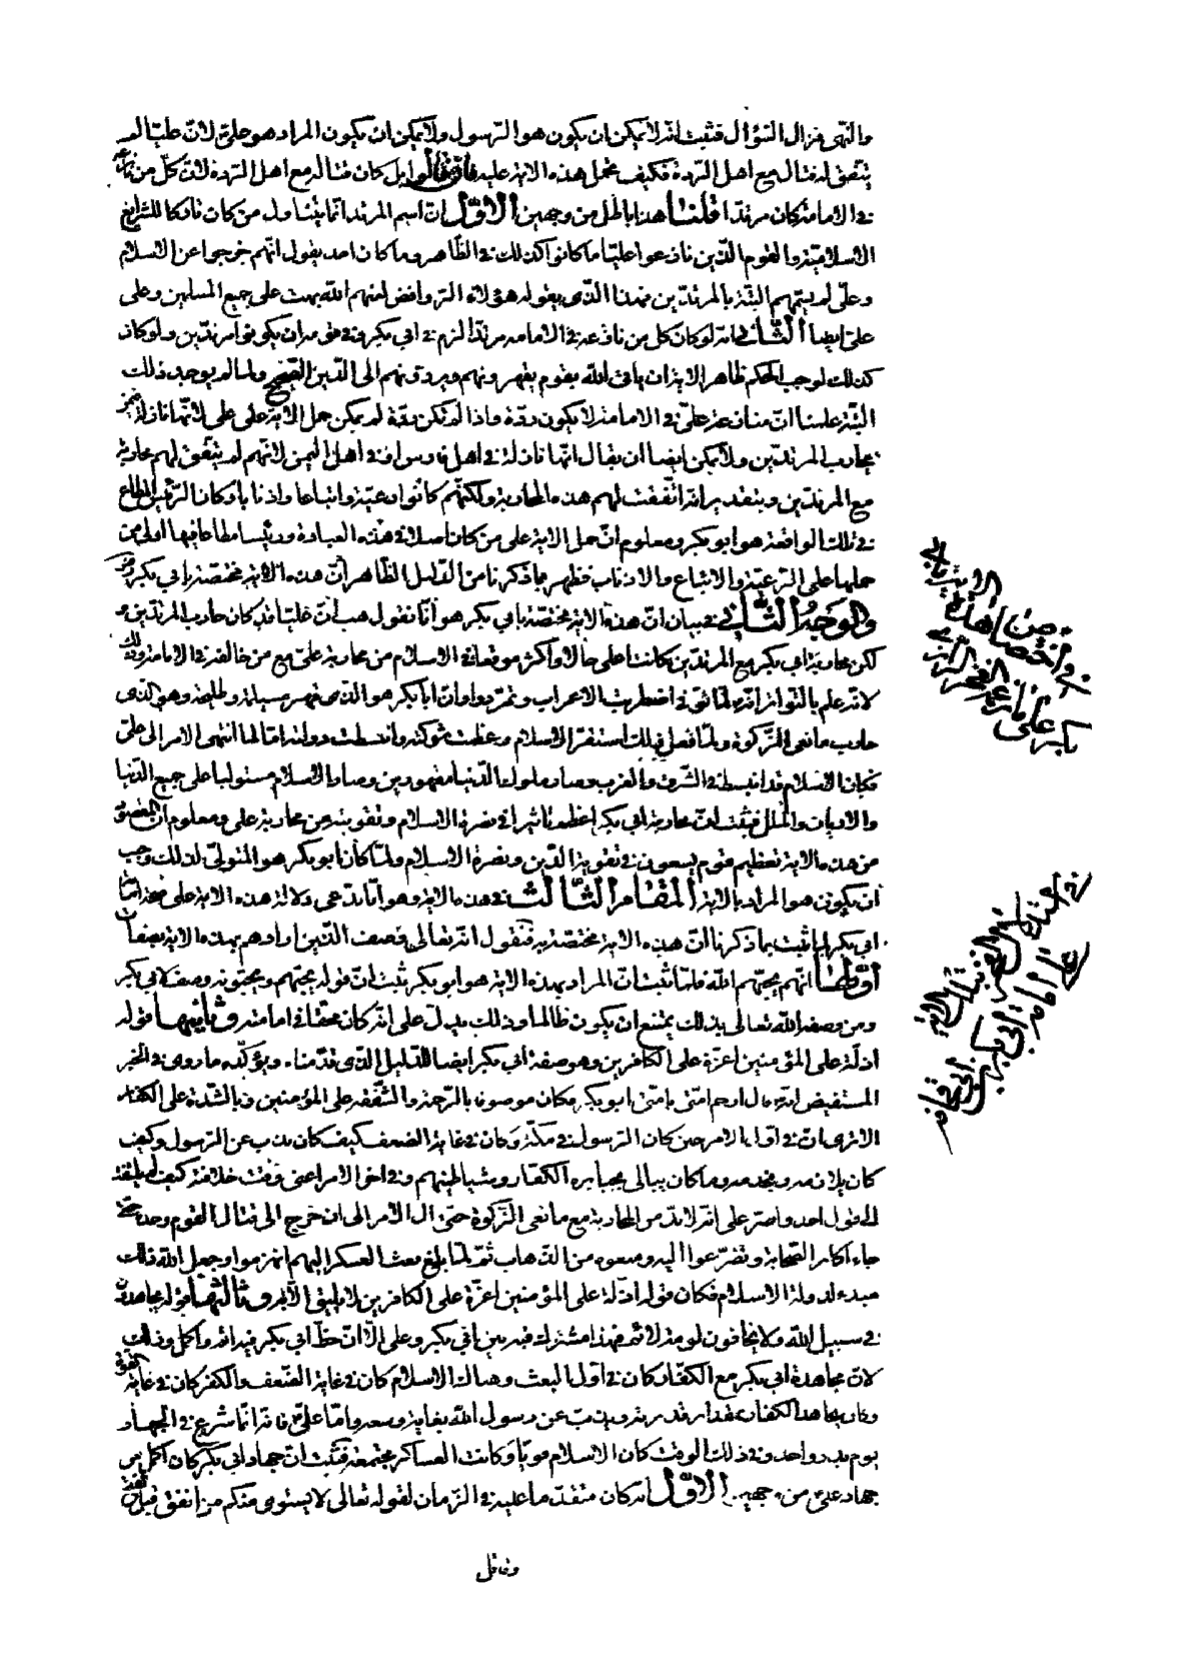 والنهى فزال السؤال فثبت انه لا يمكن ان يكون هو الرسول ولا يمكن ان يكون المراد هو على لان عليا لم
يتفق له قتال مع اهل الردة فكيف تحمل هذه الاية عليه فان قالوا بل كان قتاله مع اهل الردة لان كل من نازعه
فى الامامة كان مرتدا قلنا هذا باطل من وجهين الاول ان اسم المرتد انما يتناول من كان تاركا للشرايع
الاسلامية والقوم الذين نازعوا عليا ما كانوا كذلك فى الظاهر وما كان احد يقول انهم خرجوا عن الاسلام
وعلى لم يسمهم البتة بالمرتدين فهذا الذى يقوله هؤلاء الروافض لعنهم الله بهت على جميع المسلمين وعلى
على ايضا الثانى انه لو كان كل من نازعه فى الامامة مرتدا لزم فى ابى بكر وفى قومه ان يكونوا مرتدين ولو كان
كذلك لوجب بحكم ظاهر الاية ان ياتى الله بقوم يقهرونهم ويردونهم الى الدين الصحيح ولما لم يوجد ذلك
البتة علمنا ان منازعة على فى الامامة لا يكون ردة واذا لم تكن ردة لم يمكن حمل الاية على على لانها نازلة فيمن
يحارب المرتدين ولا يمكن ايضا ان يقال انها نازلة فى اهل فارس او فى اهل اليمن لانهم لم يتفق لهم محاربة
مع المرتدين وبتقدير انه اتفقت لهم هذه المحاربة ولكنهم كانوا رعية واتباعا واذنابا وكان الرئيس المطاع
فى تلك الواقعة هو ابو بكر ومعلوم ان حمل الاية على من كان اصلا فى هذه العبادة ورئيسا مطاعا فيها اولى من
حملها على الرعية والاتباع والاذناب فظهر بما ذكرنا من الدليل الظاهر ان هذه الاية مختصة بابى بكر
والوجه الثانى فى بيان ان هذه الاية مختصة بابى بكر هو انا نقول هب ان عليا قد كان حارب المرتدين و
لكن محاربة ابى بكر مع المرتدين كانت اعلى حالا واكثر موقعا فى الاسلام من محاربة على مع من خالفه فى الامامة وذلك
لانه علم بالتواتر انه لما توفى اضطربت الاعراب وتمردوا وان ابا بكر هو الذى قهر مسيلمة وطليحة وهو الذى
حارب مانعى الزكوة ولما فعل ذلك استقر الاسلام وعظمت شوكته وانبسطت دولته اما لما انتهى الامر الى على
فكان الاسلام قد انبسط فى الشرق والغرب وصار ملوك الدنيا مقهورين وصار الاسلام مستوليا على جميع الدنيا
والاديان والملل فثبت ان محاربة ابى بكر اعظم تاثيرا فى نصرة الاسلام وتقويته من محاربة على ومعلوم ان المقصود
من هذه الاية تعظيم قوم يسعون فى تقوية الدين ونصرة الاسلام ولما كان ابو بكر هو المتولى لذلك وجب
ان يكون هو المراد بالاية المقام الثالث فى هذه الاية وهو انا ندعى دلالة هذه الاية على صحة امامة
ابى بكر لما ثبت بما ذكرنا ان هذه الاية مختصة به فنقول انه تعالى وصف الذين ارادهم بهذه الاية بصفات
اولها انهم يحبهم الله فلما ثبت ان المراد بهذه الاية هو ابو بكر ثبت ان قوله يحبهم ويحبونه وصف لابى بكر
ومن وصفه الله تعالى بذلك يمتنع ان يكون ظالما وذلك يدل على انه كان محقا فى امامته وثانيها قوله
اذلة على المؤمنين اعزة على الكافرين وهو صفة ابى بكر ايضا للدليل الذى قدمناه ويؤكده ما روى فى الخبر
المستفيض انه قال ارحم امتى بامتى ابو بكر فكان موصوفا بالرحمة والشفقة على المؤمنين وبالشدة على الكفار
الا ترى ان فى اول الامر حين كان الرسول فى مكة وكان فى غاية الضعف كيف كان يذب عن الرسول وكيف
كان يلازمه ويخدمه وما كان يبالى بجبابرة الكفار وشياطينهم وفى اخر الامر اعنى وقت خلافته كيف لم يلتفت
الى قول احد واصر على انه لا بد من المحاربة مع مانعى الزكوة حتى ال الامر الى ان خرج الى قتال القوم وحده حتى
جاء اكابر الصحابة وتضرعوا اليه ومنعوه من الذهاب ثم لما بلغ بعث العسكر اليهم انهزموا وجعل الله ذلك
مبدء لدولة الاسلام فكان قوله اذلة على المؤمنين اعزة على الكافرين لا يليق الا به وثالثها قوله يجاهدون
فى سبيل الله ولا يخافون لومة لائم فهذا مشترك فيه بين ابى بكر وعلى الا ان حظ ابى بكر فيه اتم واكمل وذلك
لان مجاهدة ابى بكر مع الكفار كان فى اول البعث وهناك الاسلام كان فى غاية الضعف والكفر كان فى غاية القوة
وكان يجاهد الكفار بمقدار قدرته ويذب عن رسول الله بغاية وسعه واما على فانه انما شرع فى الجهاد
يوم بدر واحد وفى ذلك الوقت كان الاسلام قويا وكانت العساكر مجتمعة فثبت ان جهاد ابى بكر كان اكمل من
جهاد على من وجهين الاول انه كان متقدما عليه فى الزمان لقوله تعالى لا يستوى منكم من انفق قبل الفتح
وقاتل